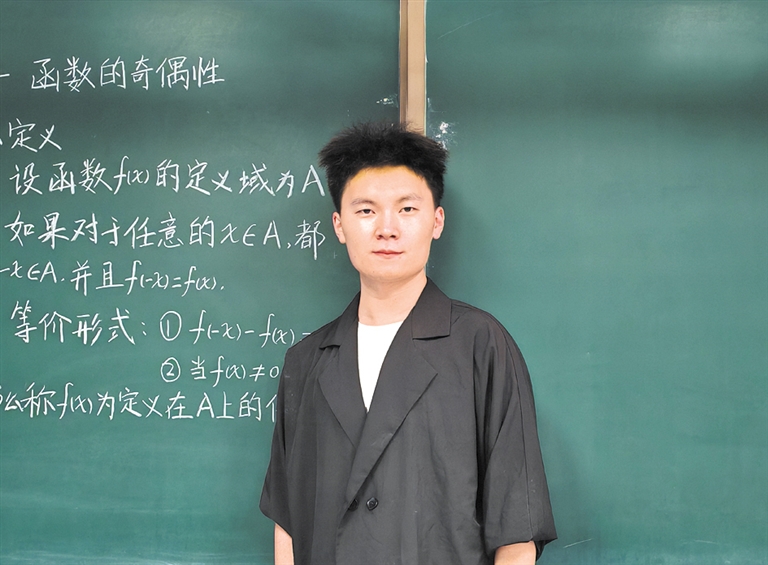 一 函数的奇偶性
定义
设函数f(x)的定义域为A
如果对于任意的x∈A,都
-x∈A,并且f(-x)=f(x).
等价形式:① f(-x)-f(x)=
② 当f(x)≠0
么称f(x)为定义在A上的